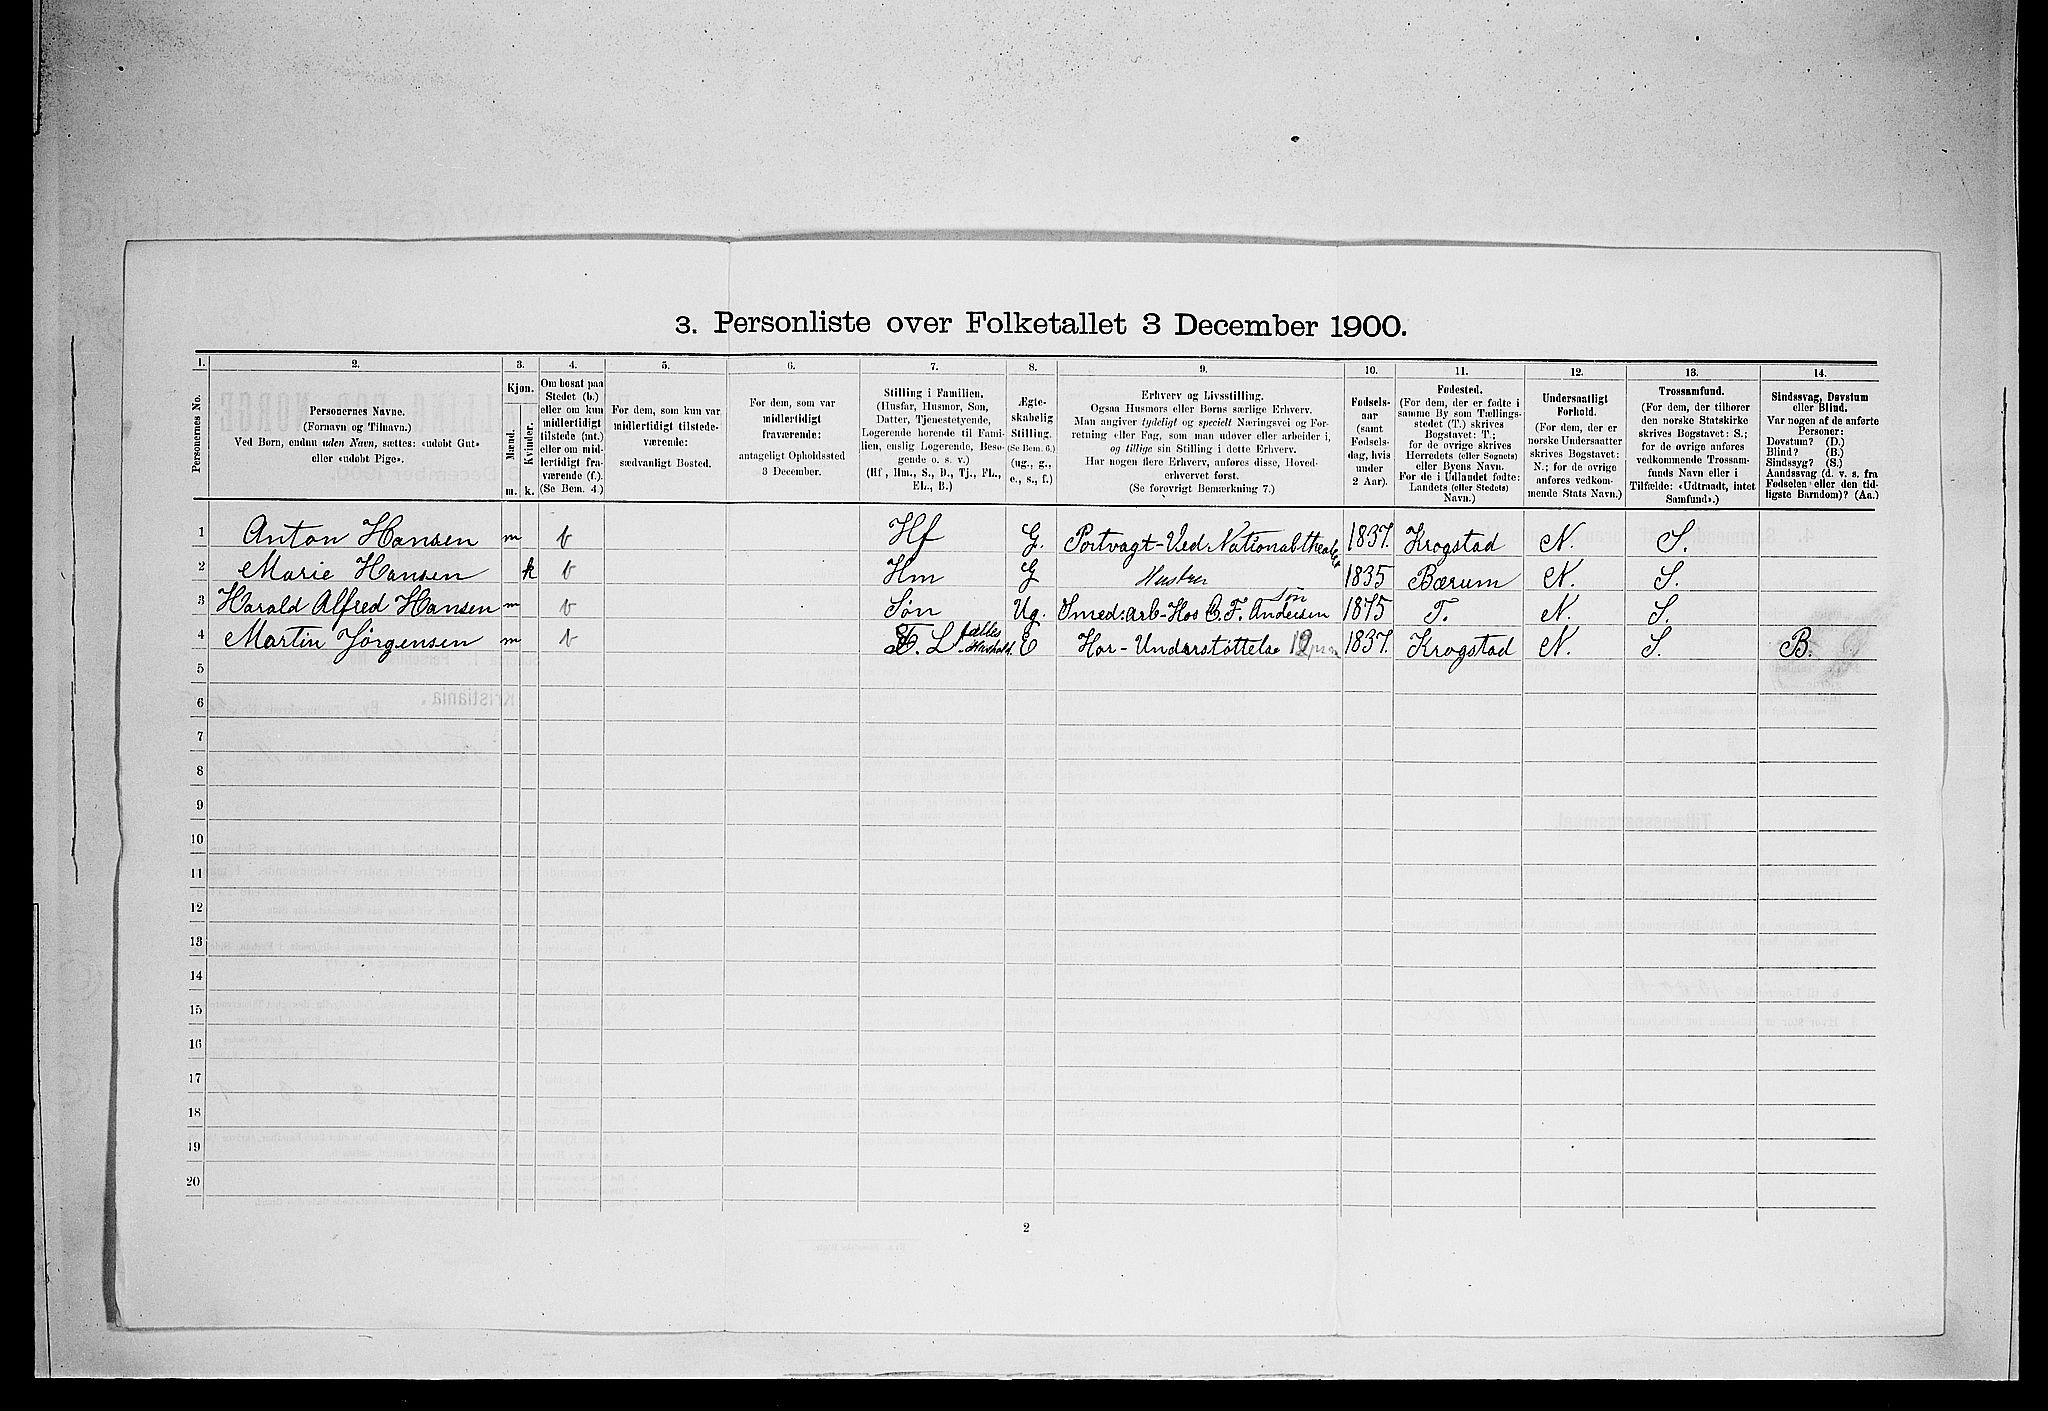 3. Personliste over Folketallet 3 December 1900.
1. 2. 3. 4. 5. 6. 7. 8. 9. 10. 11. 12. 13. 14.
Personernes No.
Personernes Navne.
(Fornavn og Tilnavn.)
Ved Børn, endnu uden Navn, sættes: «udøbt Gut»
eller «udøbt Pige».
Kjøn.
Mænd.
Kvinder.
m. k.
Om bosat paa
Stedet (b.)
eller om kun
midlertidigt
tilstede (mt.)
eller om mid-
lertidigt fra-
værende (f.).
(Se Bem. 4.)
For dem, som kun var
midlertidigt tilstede-
værende:
sædvanligt Bosted.
For dem, som var
midlertidigt
fraværende:
antageligt Opholdssted
3 December.
Stilling i Familien.
(Husfar, Husmor, Søn,
Datter, Tjenestetyende,
Logerende hørende til Fami-
lien, enslig Logerende, Besø-
gende o. s. v.)
(Hf, Hm., S., D., Tj., FL.,
EL., B.)
Ægte-
skabelig
Stilling.
(Se Bem. 6.)
(ug., g.,
e., s., f.)
Erhverv og Livsstilling.
Ogsaa Husmors eller Børns særlige Erhverv.
Man angiver tydeligt og specielt Næringsvei og For-
retning eller Fag, som man udøver eller arbeider i,
og tillige sin Stilling i dette Erhverv.
Har nogen flere Erhverv, anføres disse, Hoved-
erhvervet først.
(Se forøvrigt Bemærkning 7.)
Fødsels-
aar
(samt
Fødsels-
dag, hvis
under
2 Aar).
Fødested.
(For dem, der er fødte i
samme By som Tællings-
stedet (T.) skrives
Bogstavet: T.;
for de øvrige skrives
Herredets (eller Sognets)
eller Byens Navn.
For de i Udlandet fødte:
Landets (eller Stedets)
Navn.)
Undersaatligt
Forhold.
(For dem, der er
norske Undersaatter
skrives Bogstavet:
N.; for de øvrige
anføres vedkom-
mende Stats Navn.)
Trossamfund.
(For dem, der tilhører
den norske Statskirke
skrives Bogstavet: S.;
for de øvrige anføres
vedkommende Trossam-
funds Navn eller i
Tilfælde: «Udtraadt, intet
Samfund».)
Sindssvag, Døvstum
eller Blind.
Var nogen af de anførte
Personer:
Døvstum? (D.)
Blind? (B.)
Sindssyg? (S.)
Aandssvag (d. v. s. fra
Fødselen eller den tid-
ligste Barndom)? (Aa.)
1 Anton Hansen m b Hf G. Portvagt-Ved Nationaltheatr 1837. Krogstad N. S.
2 Marie Hansen k b Hm G Hustru 1835 Bærum N. S.
Søn
3 Harald Alfred Hansen m b Søn Ug. Smed:arb-Hos C. F. Andersen 1875 T. N. S.
4 Martin Jørgensen m b L. E Har-Understøttelse 1837. Krogstad N. S. B.
5
6
7
8
9
10
11
12
13
14
15
16
17
18
19
20
2